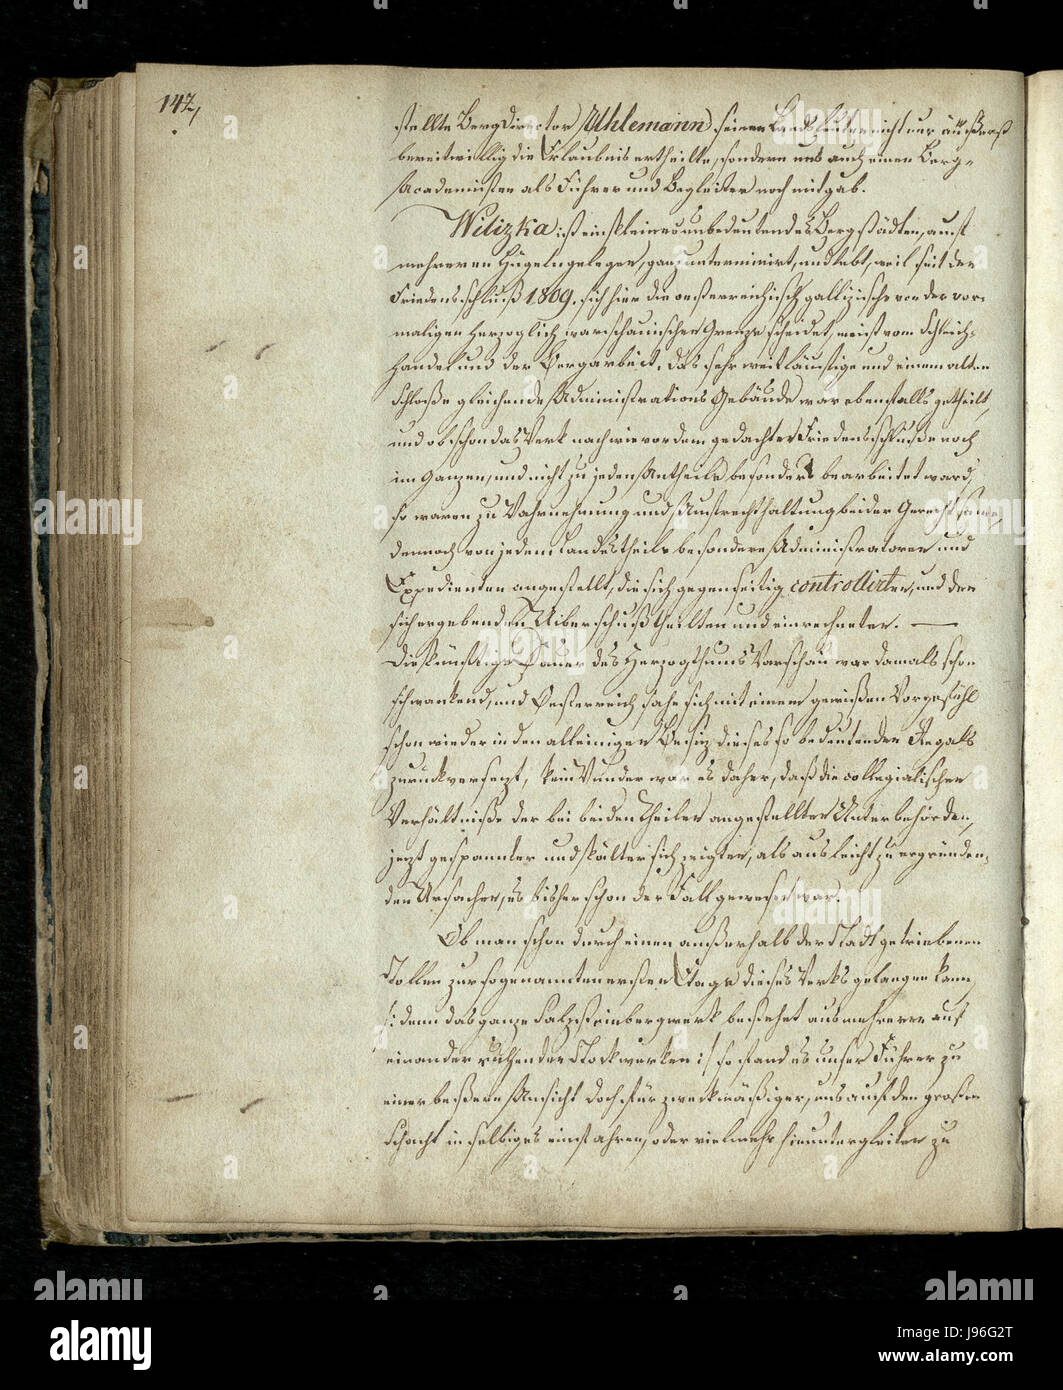 142,
stellte Bergdirector Uhlemann seinen Landsleuten nicht nur äußerst
bereitwillig die Erlaubnis ertheilte, sondern uns auch einen Berg-
Academisten als Führer und Begleiter noch mitgab.
Wilizka ist ein kleines unbedeutendes Bergstädten, auf
mehreren Hügeln gelegen, ganz unterminirt, und lebt, weil seit der
Friedensschluß 1809. sich hier die oesterreichisch gallizische von der vor-
maligen herzoglich warschauischen Grenze scheidet, meist vom Schleich-
handel und der Bergarbeit. Das sehr weitläuftige und einem alten
Schloße gleichende Administrations Gebäude war ebenfalls getheilt,
und obschon das Werk nach wie vor dem gedachten Friedensschluße noch
im Ganzen, und nicht zu jedem Antheile besonders bearbeitet ward,
so waren zu Wahrnehmung und Aufrechthaltung beider Gerechtsame,
dennoch von jedem Landestheile besondere Administratoren und
Expedienten angestellt, die sich gegenseitig controllirten, und den
sich ergebenden Uiberschuß theilten und einrechneten. —
Die künftige Dauer des Herzogthums Warschau war damals schon
schwankend, und Oesterreich sahe sich mit einem gewißen Vorgefühl
schon wieder in den alleinigen Besiz dieses so bedeutenden Regals
zurückversezt, kein Wunder war es daher, daß die collegialischen
Verhältniße der bei beiden Theilen angestellten Unterbehörden,
jezt gespannter und kälter sich zeigten, als aus leicht zu ergründen-
den Ursachen, es bisher schon der Fall gewesen war.
Ob man schon durch einen außerhalb der Stadt getriebenen
Stollen zur sogenannten ersten Etage dieses Werks gelangen kann
/: denn das ganze Salzsteinbergwerk bestehet aus mehreren auf
einander ruhenden Stockwerken :/ so fand es unser Führer zu
einer beßern Ansicht doch für zweckmäßiger, uns auf den großen
Schacht in selbiges einfahren, oder vielmehr hinuntergleiten zu
alamy
a
alamy
Image ID: J96G2T
www.alamy.com